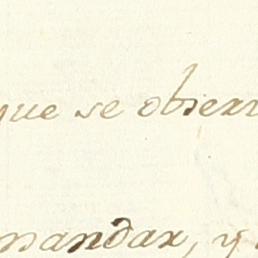 que se obser
mandar, y